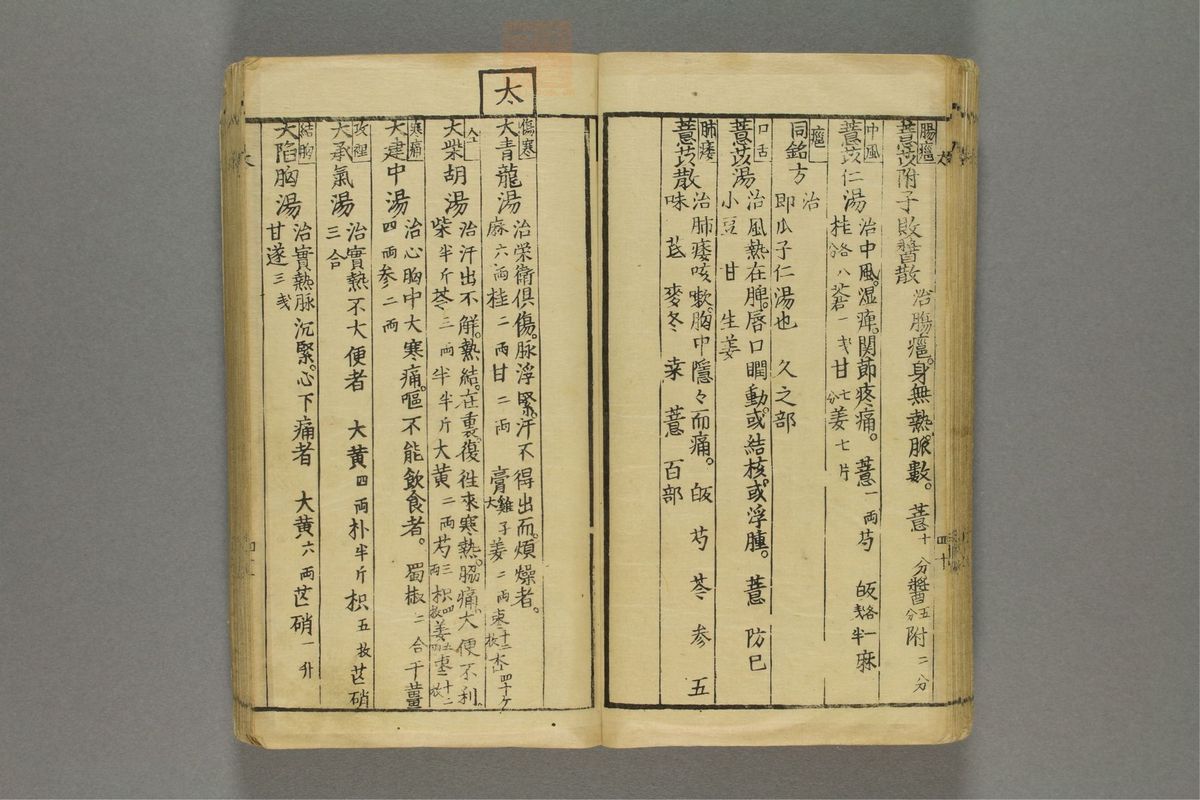 腸癰
薏苡附子敗醬散
治腸癰。身無熱。脈數。 薏十分 醬五分 附二分
中風
薏苡仁湯
治中風。湿痺。関節疼痛。 薏一両 芍 皈各一戔半 麻
桂各八分 蒼一戔 甘七分 姜七片
癰
同銘方
治
即瓜子仁湯也 久之部
口舌
薏苡湯
治風熱在脾。唇口瞤動。或結核。或浮腫。 薏 防已
小豆 甘 生姜
肺痿
薏苡散
治肺痿咳嗽。胸中隱々而痛。 皈 芍 苓 参 五
味 芪 麥冬 桒 薏 百部
太
傷寒
大青龍湯
治榮衛俱傷。脉浮緊。汗不得出而。煩燥者。
麻六両 桂二両 甘二両 膏雞子大 姜二両 枣十二枚 杏四十ケ
仝
大柴胡湯
治汗出不解。熱結。在裏。復徃來寒熱。脇痛。大便不利。
柴半斤 芩三両 半半斤 大黄二両 芍三両 枳四枚 姜五両 枣十二枚
寒痛
大建中湯
治心胸中大寒痛。嘔不能飲食者。 蜀椒二合 干薑
四両 参二両
攻裡
大承氣湯
治實熱不大便者 大黄四両 朴半斤 枳五枚 芒硝
三合
結胸
大陷胸湯
治實熱脉沉緊。心下痛者 大黄六両 芒硝一升
甘遂三戔